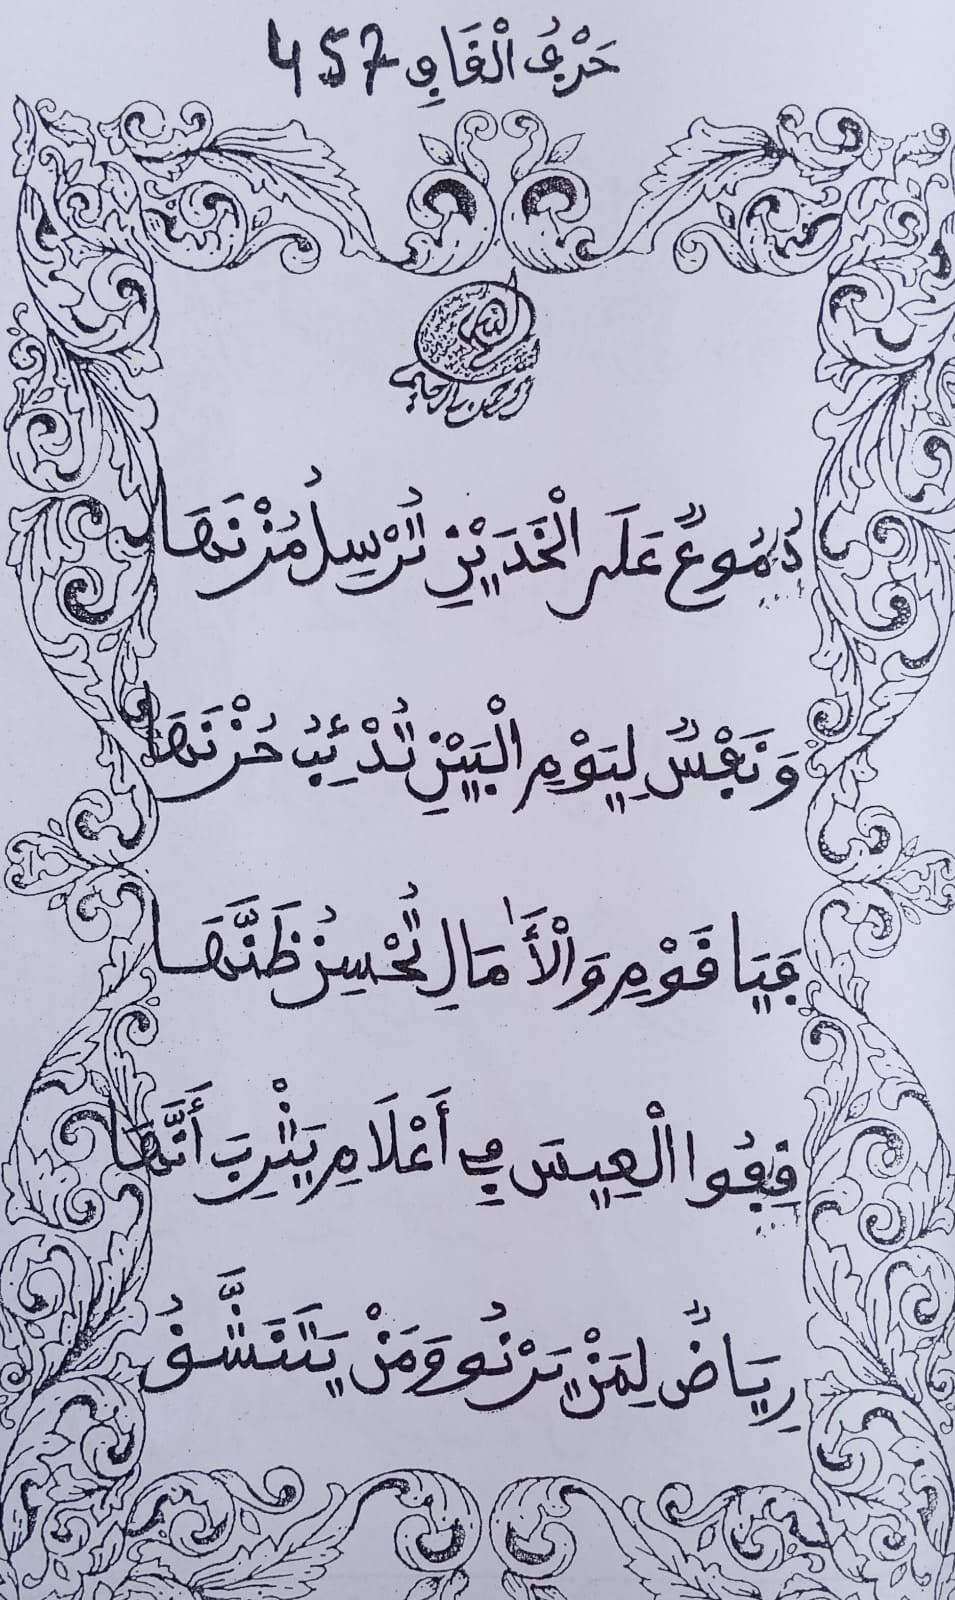 حَرْفُ الْقَافِ 457
دُمُوعٌ عَلَى الْخَدَّيْنِ تُرْسِلُ مُزْنَهَا
وَنَفْسٌ لِيَوْمِ الْبَيْنِ تُدْئِبُ حُزْنَهَا
فَيَا قَوْمِ وَالْأَمَالِ تُحْسِنُ ظَنَّهَا
قِفُوا الْعِيسَ فِي أَعْلَامِ يَثْرِبَ أَنَّهَا
رِيَاضٌ لِمَنْ يَرْنُو وَمَنْ يَتَنَشَّقُ